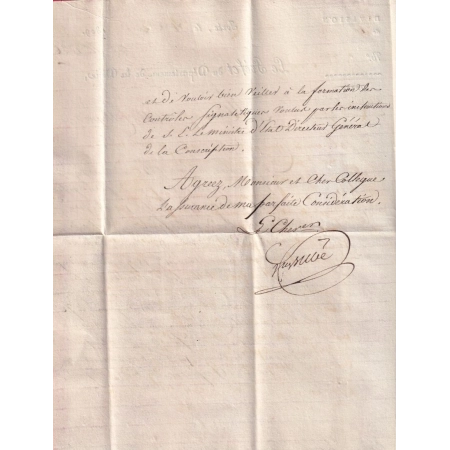 et de vouloir bien Veiller à la formation des
Controles signalétiques voulus par les instructions
de S. E. Le ministre d'Etat Directeur Général
de la Conscription.
Agreez, Monsieur et Cher Collegue
L'assurance de ma parfaite Considération.